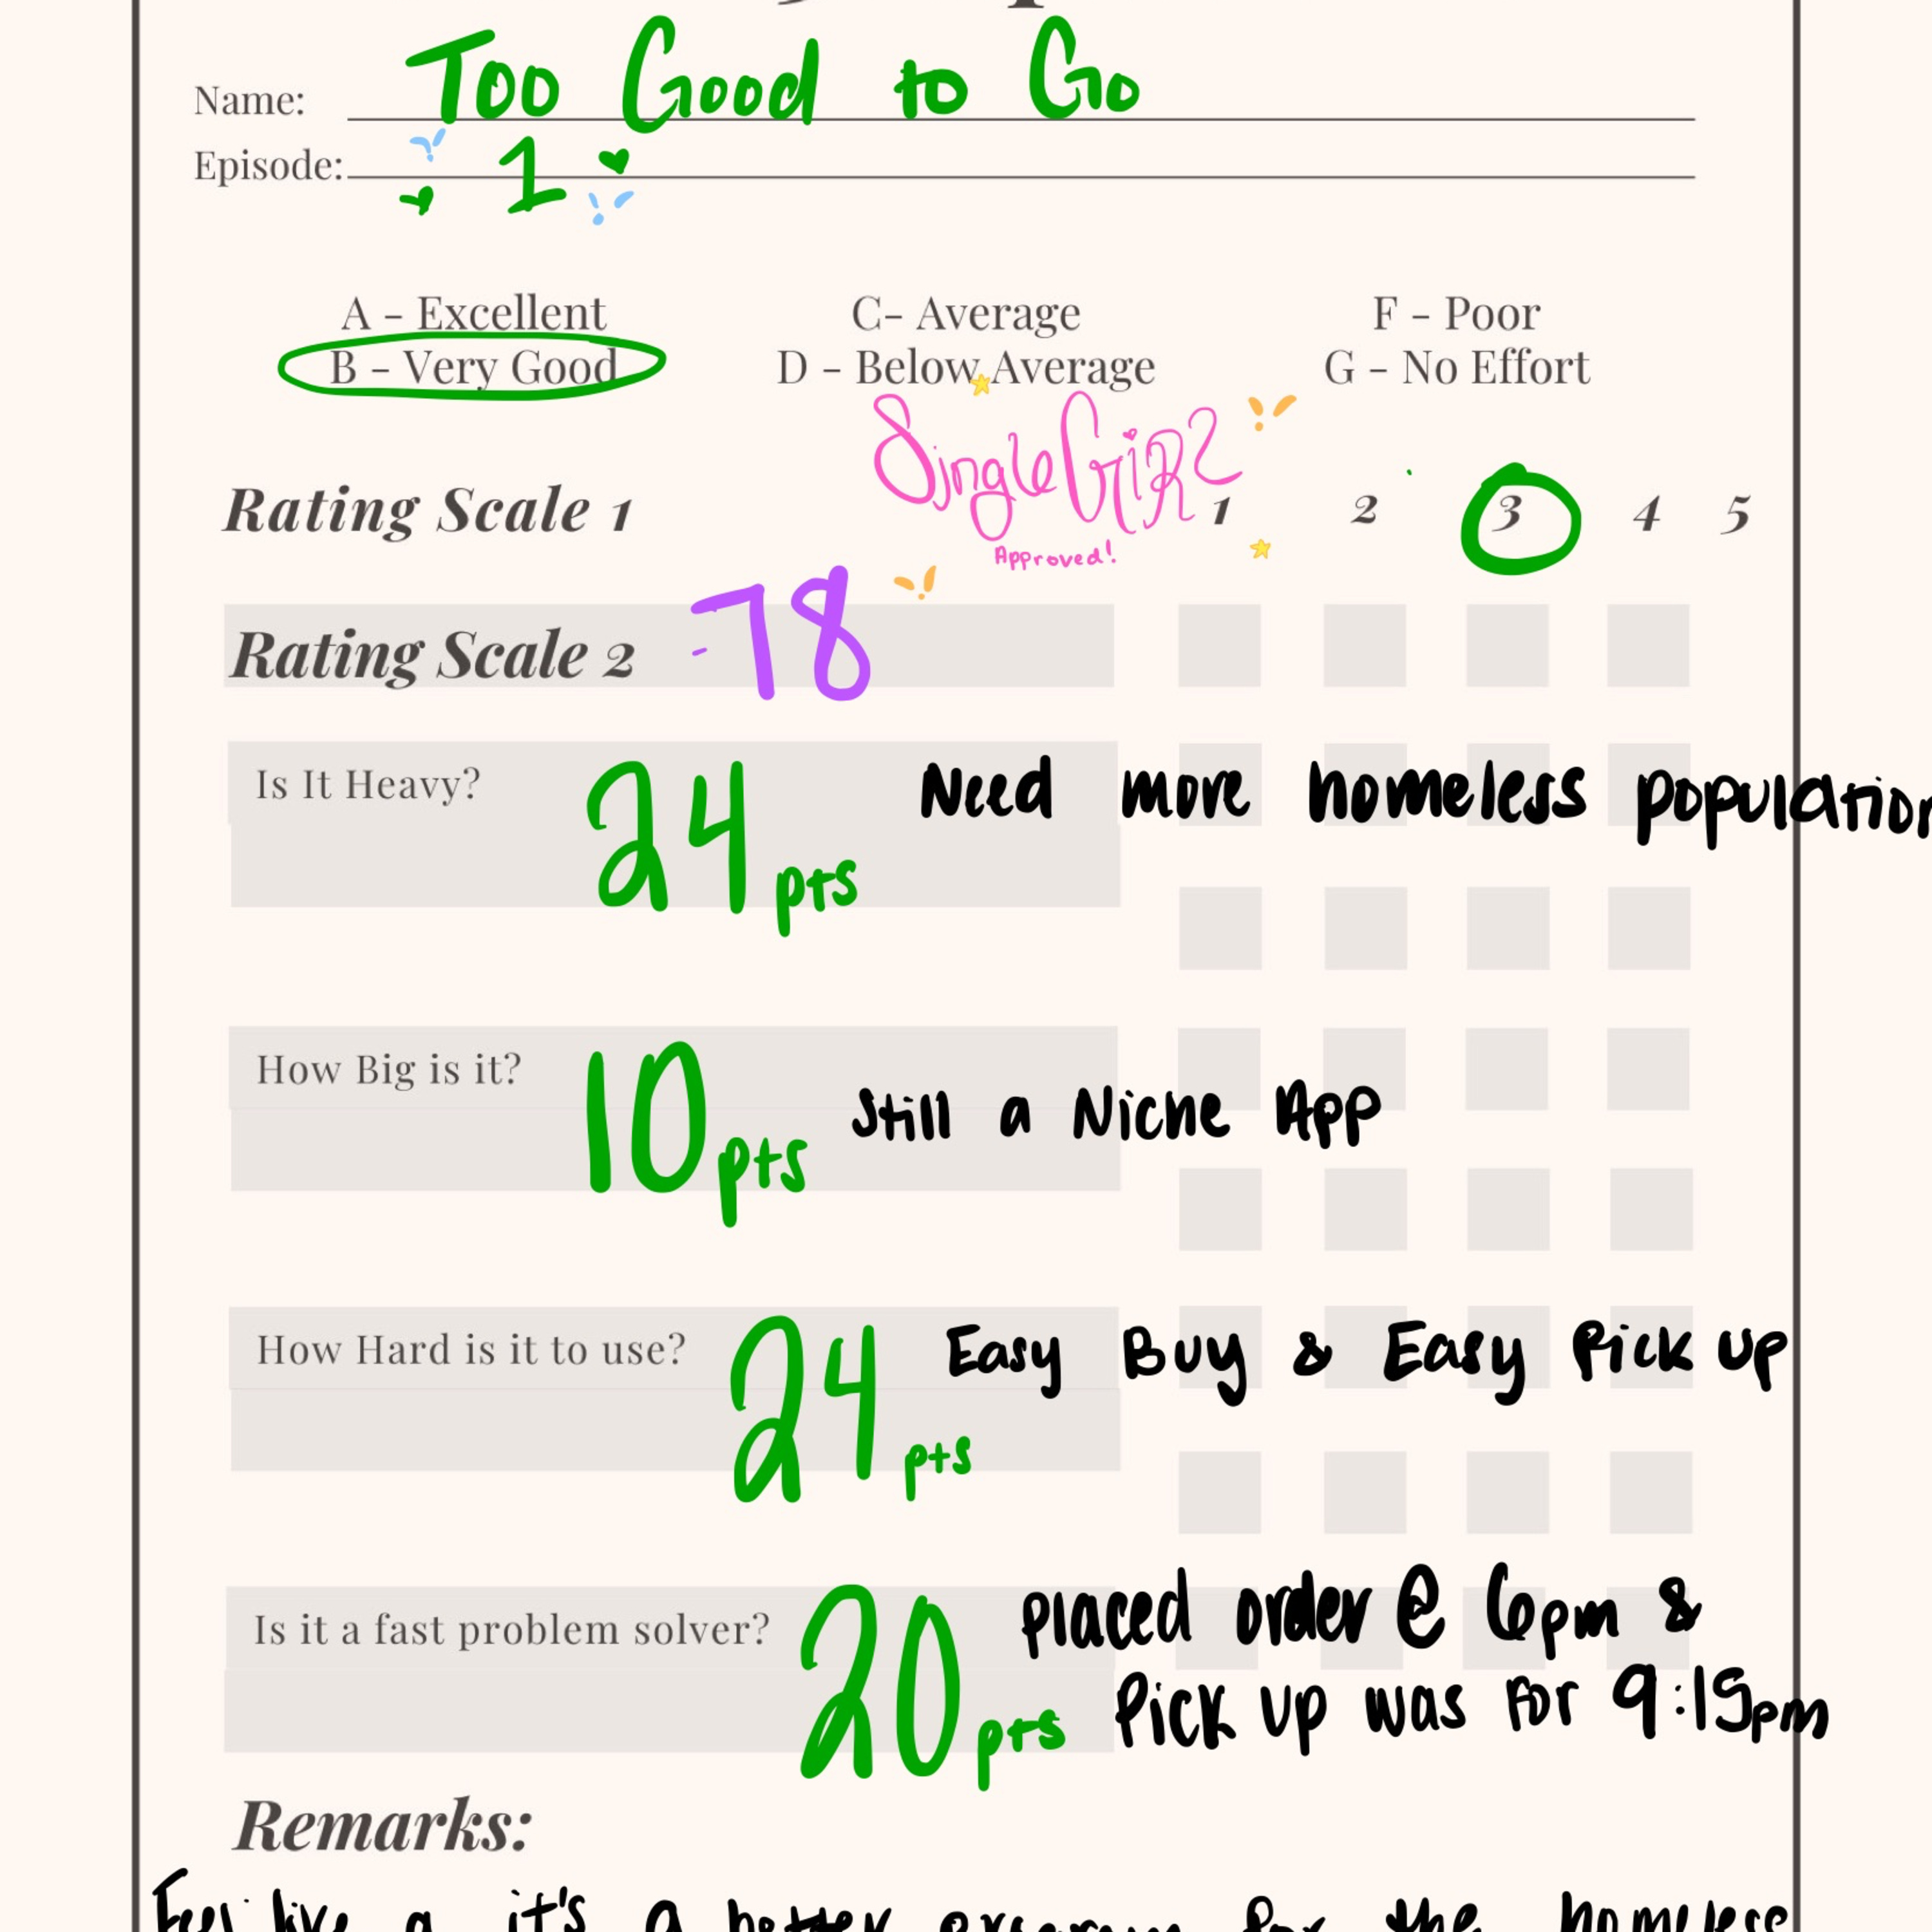 Name: Too Good to Go
Episode: 1
A - Excellent C- Average F - Poor
B - Very Good D - Below Average G - No Effort
SingleGirl
Approved!
Rating Scale 1 1 2 3 4 5
Rating Scale 2 -78
Is It Heavy? 24 pts Need more homeless population
How Big is it? 10 pts Still a Niche App
How Hard is it to use? 24 pts Easy Buy & Easy Pick up
Is it a fast problem solver? 20 pts placed order @ 6pm &
Pick up was for 9:15pm
Remarks:
Feel like a it's a better program for the homeless